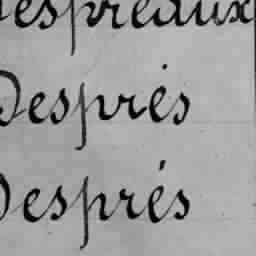 Despréaux
Després
Després